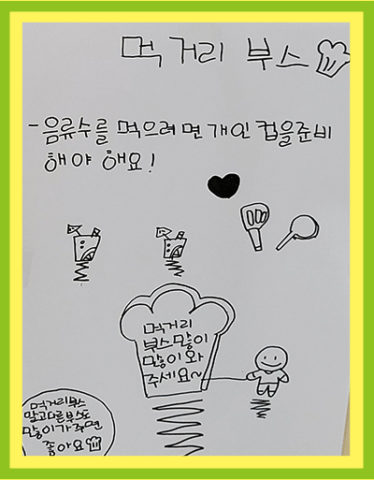 먹거리 부스
- 음류수를 먹으려면 개인 컵을준비
해야 해요!
먹거리
부스많이
많이와
주세요~
먹거리부스
말고다른부스도
많이가주면
좋아요